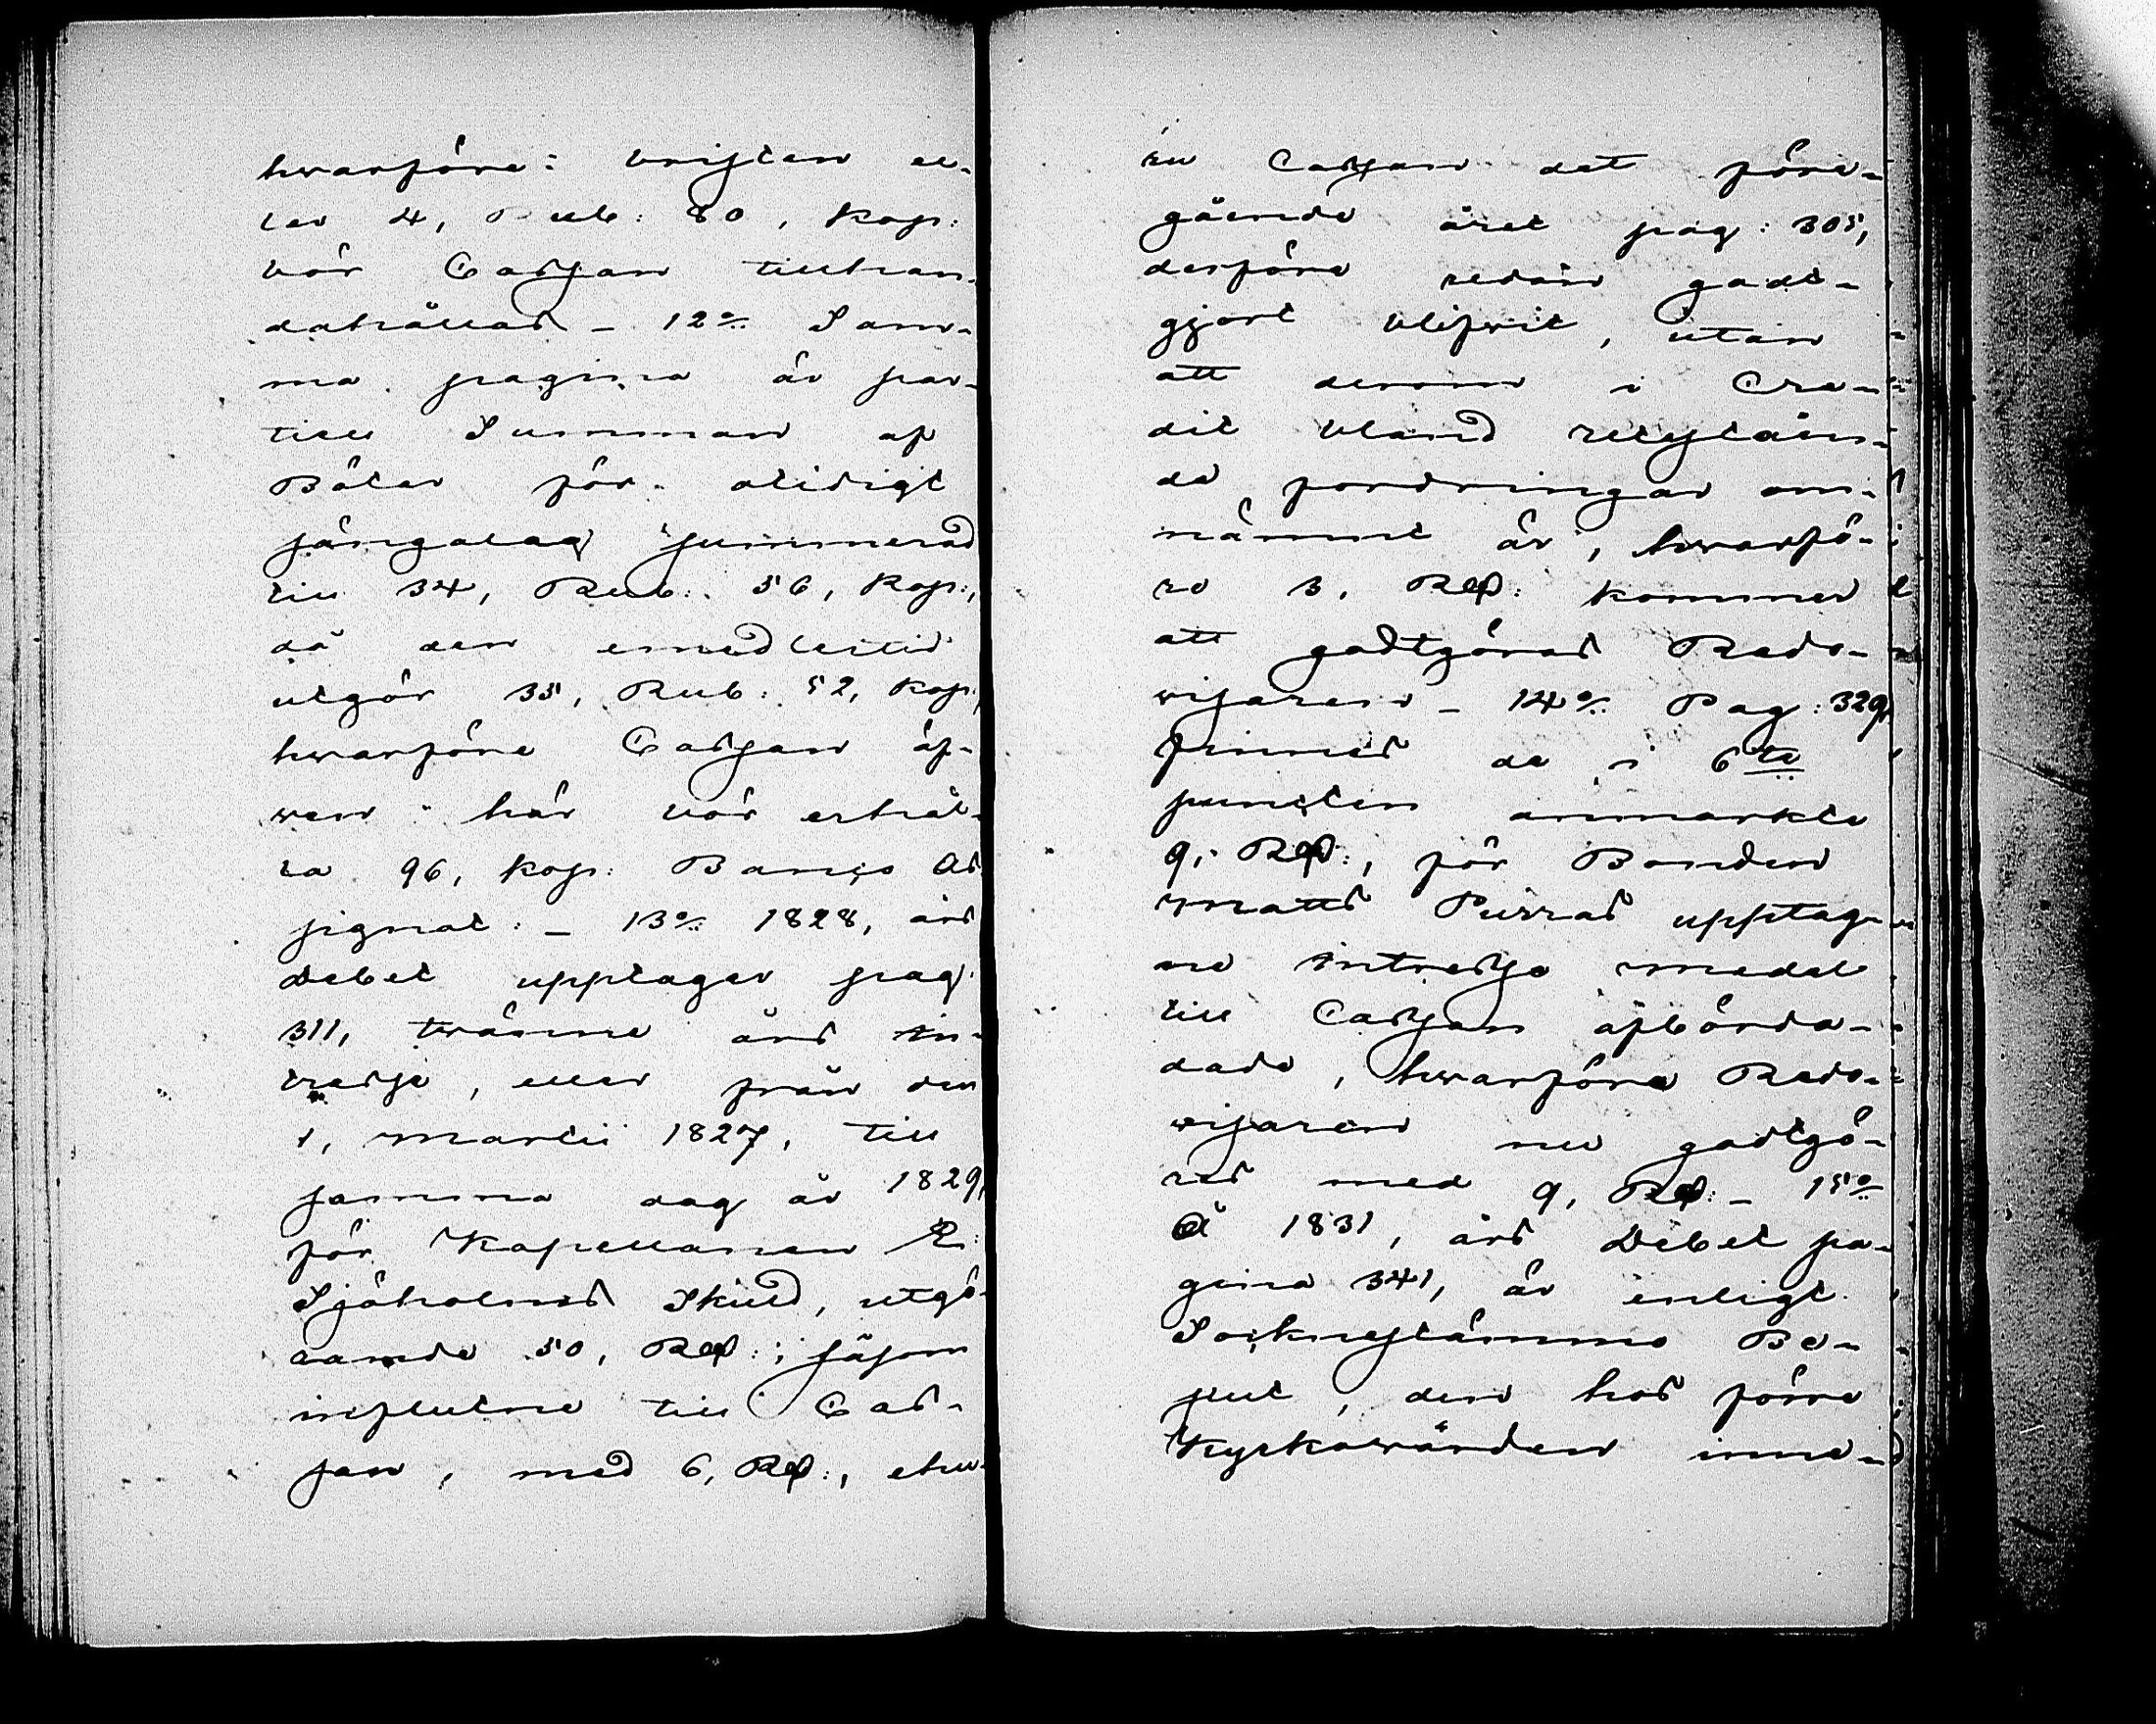 hwarföre bristen el-
ler 4, Rub: 80, Kop:
bör Cassan tillhan-
dahållas – 12:o Sam-
ma pagina är par-
tiell Summan af
Böter för olidigt
sängalag summerad
till 34, Rub: 56, Kop:,
då den emedlertid
utgör 35, Rub: 52, Kop:,
hwarföre Cassan äf-
wen här bör erhål-
la 96, Kop: Banco As-
signat: – 13:o 1828, års
Debet upptager pag:
311, twänne års In-
tresse, eller från den
1, Martii 1827, till
samma dag år 1829,
för Kapellanen E:
Sjöholms Skuld, utgö-
rande 50, Rub:, såsom
influtne till Cas-
san, med 6, Rub:, ehu-
ru Cassan det före-
gående året pag: 305,
derföre redan godt-
gjort blifwit, utan
att derom i Cre-
dit bland resteran-
de fordringar om-
nämnt är, hwarfö-
re 3, Rub: kommer
att godtgöras Redo-
wisaren – 14:o Pag: 329,
finnas de i 6:te
puncten anmärkte
9, Rub:, för Bonden
Matts Purras upptag-
ne Intresse medel
till Cassan afbörda-
dade, hwarföre Redo-
wisaren nu godtgö-
res med 9, Rub: – 15:o
Å 1831, års Debet pa-
gina 341, är enligt
Socknestämmo Be-
slut, den hos förre
Kyrkowärden inne-